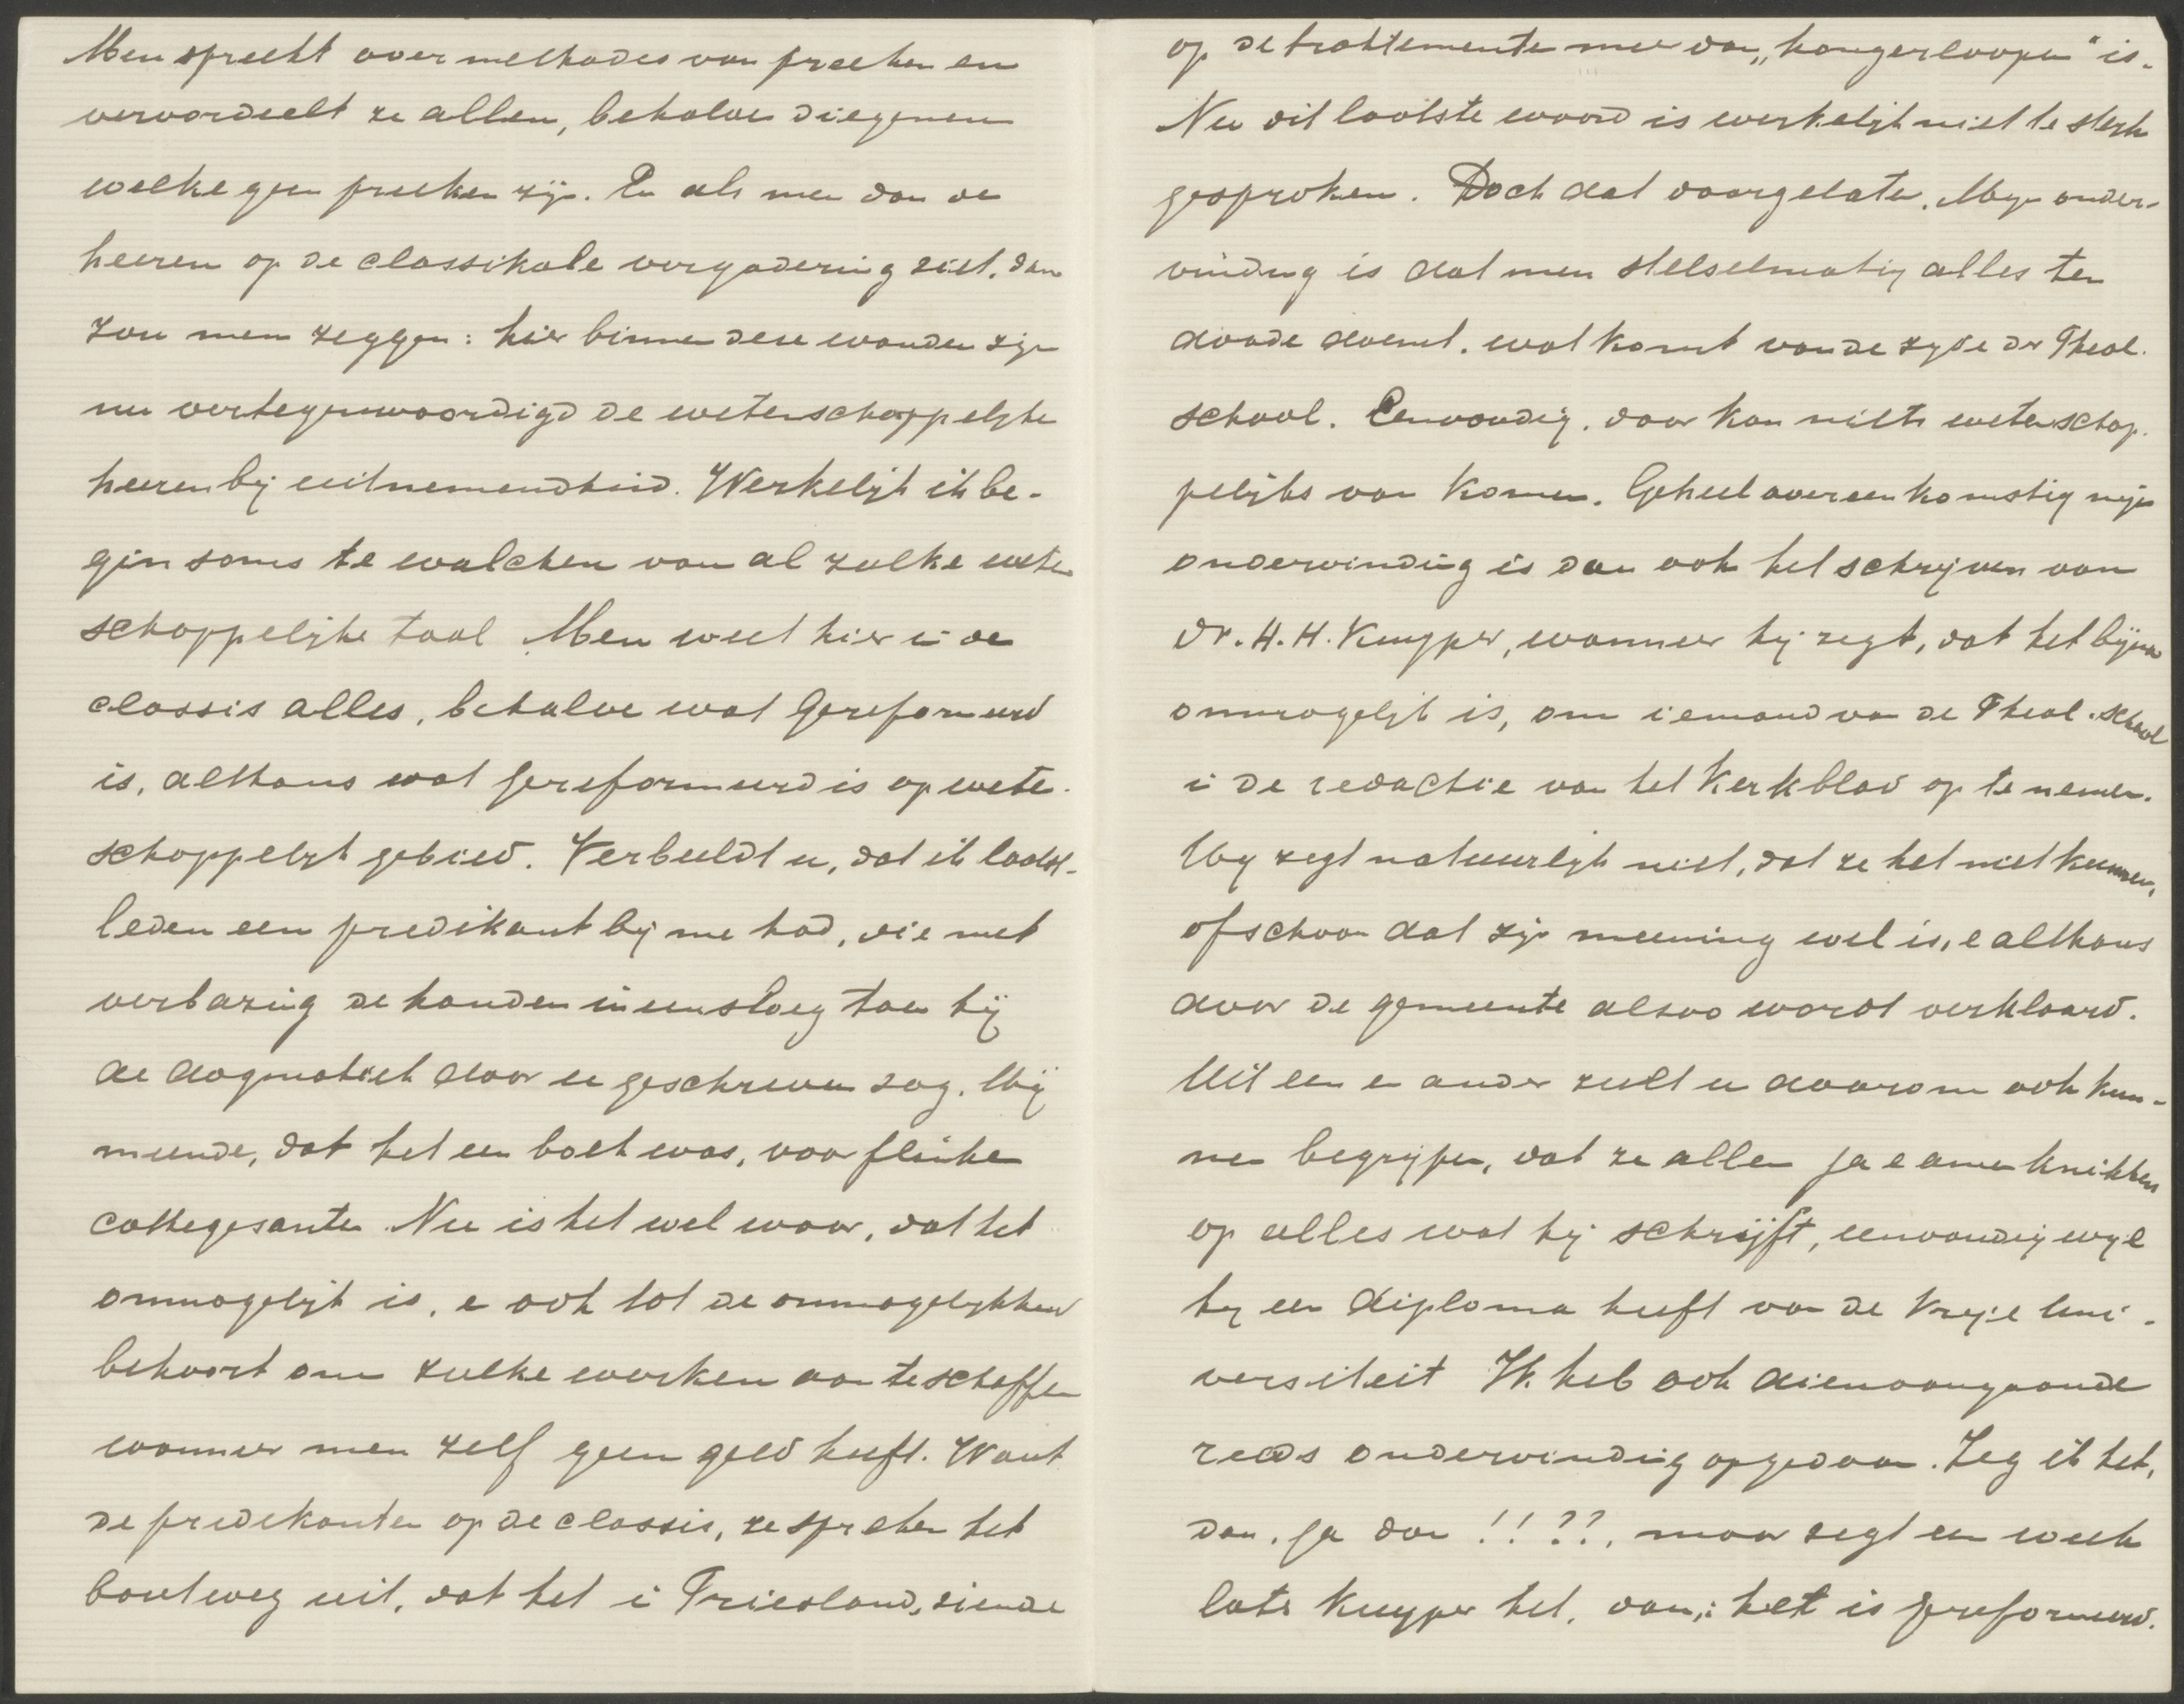 Men spreekt over methodes van preeken en
veroordeelt ze allen, behalve diegenen
welke geen preeken zijn. En als men dan de
heeren op de classikale vergadering ziet, dan
zou men zeggen: hier binnen deze wanden zijn
nu vertegenwoordigd de wetenschappelijke
heeren bij uitnemendheid. Werkelijk ik be-
gin soms te walchen van al zulke weten
schappelijke taal. Men weet hier in de
classis alles, behalve wat Gereformeerd
is, althans wat Gereformeerd is op weten-
schappelijk gebied. Verbeeldt u, dat ik laatst-
leden een predikant bij me had, die met
verbazing de handen ineensloeg toen hij
de dogmatiek door u geschreven zag. Hij
meende, dat het een boek was, voor flinke
cathegesanten. Nu is het wel waar, dat het
onmogelijk is, en ook tot de onmogelijkheid
behoort om zulke werken aan te schaffen
wanneer men zelf geen geld heeft. Want
de predikanten op de classis, ze spreken het
boutweg uit, dat het in Friesland, ziende
op de traktementen meer dan „hongerloopen" is.
Nu dit laatste woord is werkelijk niet te sterk
gesproken. Doch dat daargelaten. Mijn onder-
vinding is dat men stelselmatig alles ten
doode doemt, wat komt van de zijde der Theol.
School. Eenvoudig, daar kan niets wetenschap-
pelijks van komen. Geheel overeenkomstig mijn
ondervinding is dan ook het schrijven van
Dr. H. H. Kuyper, wanneer hij zegt, dat het bijna
onmogelijk is, om iemand van de Theol. School
in de redactie van het Kerkblad op te nemen.
Hij zegt natuurlijk niet, dat ze het niet kunnen,
ofschoon dat zijn meening wel is, en althans
door de gemeente alzoo wordt verklaard.
Uit een en ander zult u daarom ook kun-
nen begrijpen, dat ze allen ja en amen knikken
op alles wat hij schrijft, eenvoudig wijl
hij een diploma heeft van de Vrije Uni-
versiteit. Ik heb ook dienaangaande
reeds ondervinding opgedaan. Zeg ik het,
dan, ja dan !! ??, maar zegt een week
later Kuyper het, dan: het is Gereformeerd.